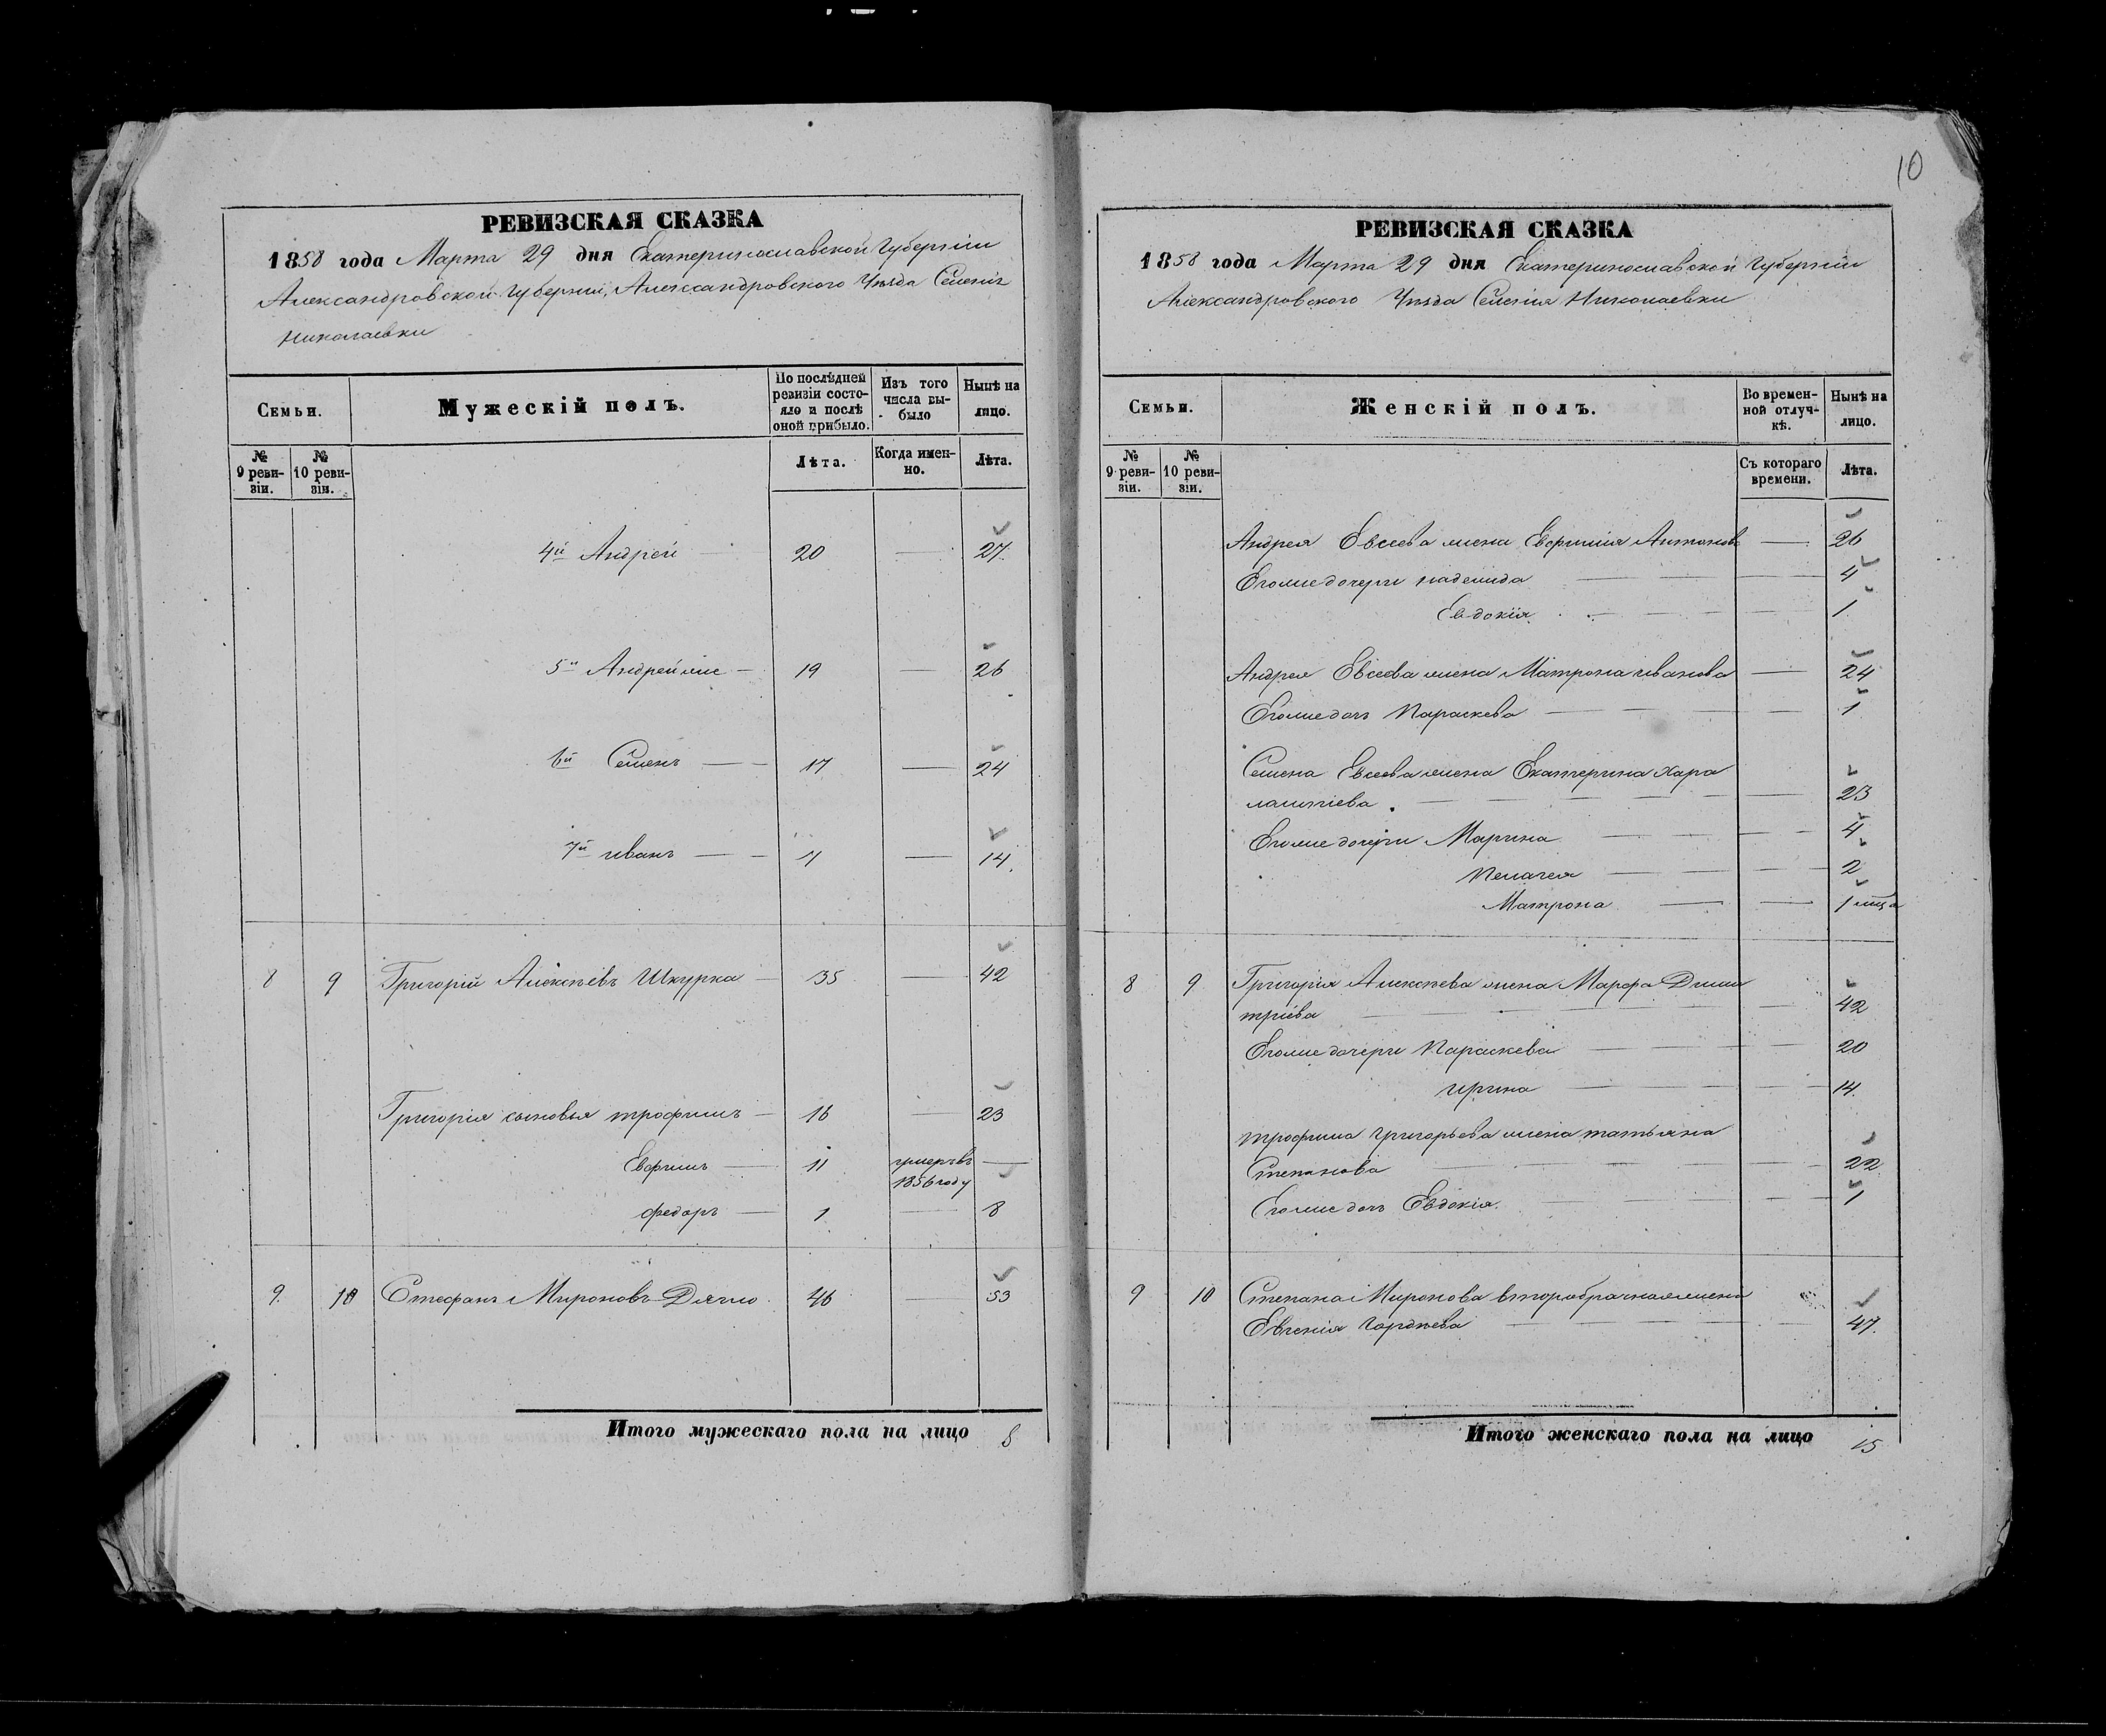 10
РЕВИЗСКАЯ СКАЗКА
1858 года Марта 29 дня Екатеринославской Губерніи
Александровской Губерніи, Александровского Уѣзда Селенія
Николаевки
Семьи.
Мужескій полъ.
По послѣдней ревизіи состояло и послѣ оной прибыло.
Изъ того числа выбыло
Нынѣ на лицо.
№ 9 ревизіи.
№ 10 ревизіи.
Лѣта.
Когда именно.
Лѣта.
4й Андрей 20 — 27.
5й Андрей же — 19 — 26
6й Семенъ — 17 — 24
7й иванъ — — — 14.
8 9 Григорій Алексѣевъ Шкурка — 35 — 42
Григорія сыновья трофимъ — 16 — 23
Евфимъ — 11 умеръ въ —
1856 году
федоръ — 1 — 8
9. 10 Стефанъ Мироновъ 46 — 53
Итого мужескаго пола на лицо 8
РЕВИЗСКАЯ СКАЗКА
1858 года Марта 29 дня Екатеринославской Губерніи
Александровского Уѣзда Селенія Николаевки
Семьи.
Женскій полъ.
Во временной отлучкѣ.
Нынѣ на лицо.
№ 9 ревизіи.
№ 10 ревизіи.
Съ котораго времени.
Лѣта.
Андрея Евсеева жена Евфимия Антонова — 26
Егоже дочери надежида — — — 4
Евдокія — — — 1.
Андрея Евсеева жена Матрона иванова — 24
Егоже дочь Параскева — — — 1
Семена Евсеева жена Екатерина Хара
лампіева — — — 23
Егоже дочери Марина — — — 4
Пелагея — — — 2
Матрона — — 1 мѣс
8 9 Григорія Алексѣева жена Марфа Дими
тріева — — — 42
Егоже дочери Параскева — — 20
ирина — — 14.
трофима григорьева жена татьяна
Степанова — — — 22
Егоже дочь Евдокія. — — — 1
9 10 Степана Миронова второбрачная жена
Евгенія Гордѣева — — — 47.
Итого женскаго пола на лицо 15